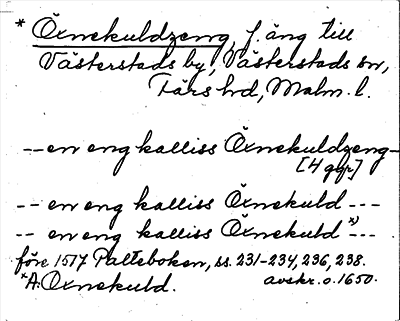 * Öxnekuldzeng, f. äng till
Västerstads by, Västerstads sn,
Färs hd, Malm. l.
-- en eng kalliss Öxnekuldzeng-
[4 ggr]
-- en eng kalliss Öxnekuld ---
-- en eng kalliss Öxnekuld x) ---
före 1517 Palteboken, ss. 231-234, 236, 238.
x A: Öxnekuld. avskr. o. 1650.